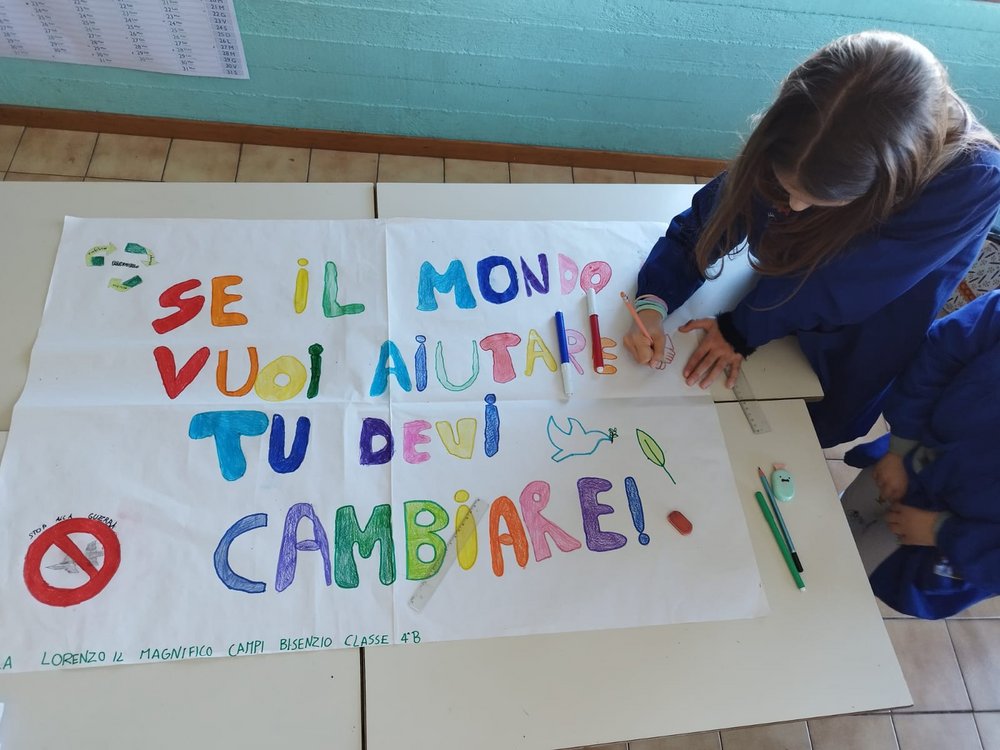 SE IL MONDO
VUOI AIUTARE
TU DEVI
CAMBIARE!
STOP ALLA GUERRA
A LORENZO IL MAGNIFICO CAMPI BISENZIO CLASSE 4°B